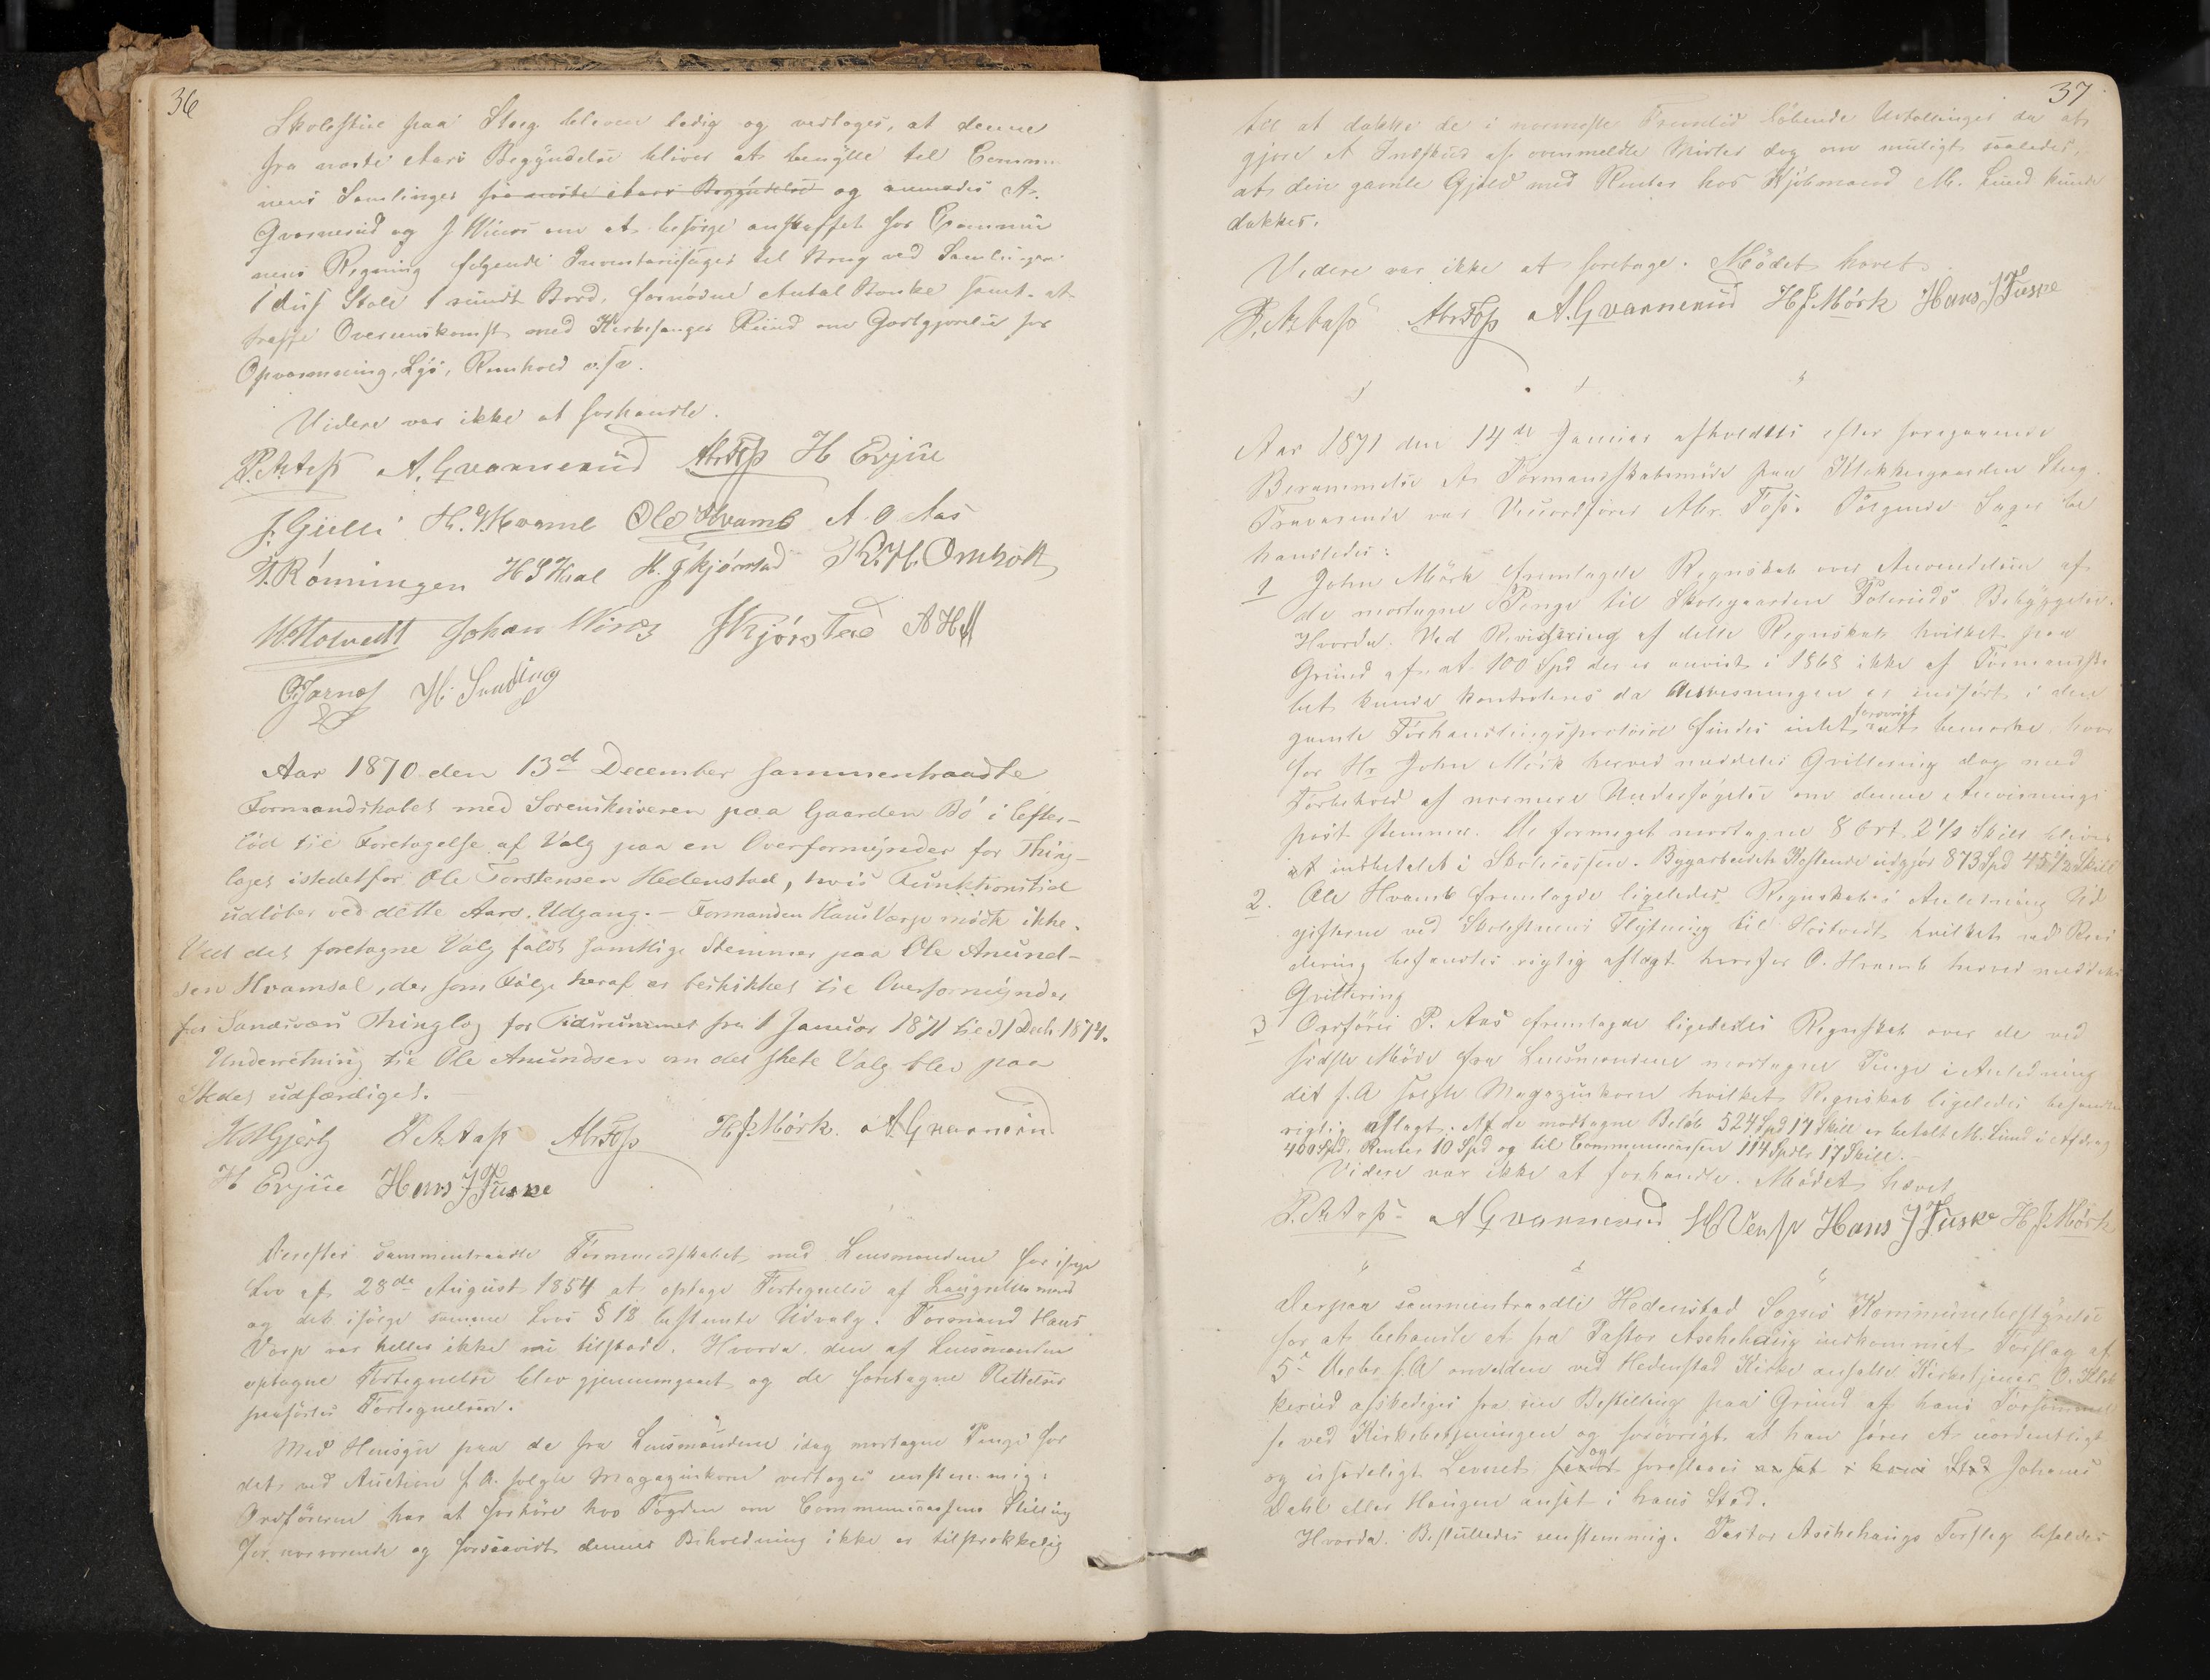 36
Skolestuen paa Steeg bleven ledig og vedtoges, at denne
fra næste Aars Begyndelse bliver at benytte til Commu-
nens Samlinger fra næste Aars Begyndelse og anmodes A.
Gvarnerud og J Wiers om at besørge anskaffet for Commu
nens Regning følgende Inventariesager til Brug ved Samlingerne
1 dus Stole 1 rundt Bord, fornødne Antal Bænke samt at
træffe Overenskomst med Kirkesanger Ruud om Godtgjørelse for
Opvarmning, Lys, Renhold o.s.v.
Videre var ikke at forhandle.
P. Aas A. Gvarnerud Abr Foss H Evju
J. Gulli H. Hvamb Ole Hvamb A. O. Aas
T. Rönningen H S Hval H. Skjörstad K. H. Omholt
Johan Wiers Skjörstad
H. Sunding
Aar 1870 den 13d December sammentraadte
Formandskabet med Sorenskriveren paa Gaarden Bö i Efter-
löd til Foretagelse af Valg paa en Overformynder for Thing-
laget istedetfor Ole Torstensen Hedenstad, hvis Funktionstid
udlöber ved dette Aars Udgang. – Formanden Hans Værp mödte ikke.
Ved det foretagne Valg faldt samtlige Stemmer paa Ole Amund-
sen Hvamsal, der som Fölge heraf er beskikket til Overformynder
for Sandsvær Thinglag for Tidsrummet fra 1 Januar 1871 til 31 Decb 1874.
Underretning til Ole Amundsen om det skete Valg blev paa
Stedet udfærdiget. –
P. Aas Abr Foss H J. Mörk. A. Gvarnerud
H Evju Hans J Tuske
Derefter sammentraadte Formandskabet med Lensmanden for ifølge
Lov af 28de August 1854 at optage Fortegnelse af Laugrettesmænd
og det ifølge samme Lovs § 18 bestemte Udvalg. Formand Hans
Vörp var heller ikke nu tilstede. Hvorda. den af Lensmanden
optagne Fortegnelse blev gjennemgaaet og de foretagne Rettelser
paaførtes Fortegnelsen.
Med Hensyn paa de fra Lensmanden idag modtagne Penge for
det ved Auction f. A. solgte Magazinkorn vedtoges enstemmig:
Ordföreren har at forhöre hos Fogden om Communecassens Stilling
for nærværende og forsaavidt dennes Beholdning ikke er tilstrækkelig
37
til at dække de i nærmeste Fremtid löbende Udtællinger da at
gjøre et Indskud af ovenmeldte Midler dog om muligt saaledes,
at den gamle Gjæld med Renter hos Kjöbmand M. Lund kunde
dækkes.
Videre var ikke at foretage. Mödet hævet
P. Aas Abr Foss A. Gvarnerud H J. Mörk Hans J Tuske
Aar 1871 den 14de Januar afholdtes efter foregaaende
Berammelse et Formandskabsmöde paa Klokkergaarden Steeg.
Fraværende var Viceordförer Abr. Foss. Fölgende Sager be
handledes:
1 John Mörk fremlagde Regnskab over Anvendelsen af
de modtagne Penge til Skolegaarden Bebyggelse.
Hvorda. Ved Revidering af dette Regnskab hvilket paa
Grund af at 100 Spd der er anvist i 1868 ikke af Formandska
bet kunde kontroleres da Anvisningen er indfört i den
gamle Forhandlingsprotocol findes intet forøvrigt at bemærke hvor
for Hr John Mörk herved meddeles Qvittering dog med
Forbehold af nærmere Undersögelse om denne Anvisnings
post stemmer. De formeget modtagne 8 Ort 2 1/2 Skill bliver
at indbetalt i Skolecassen. Byggearbeidets Kostende udgjör 873 Spd 45 1/2 Skill
2. Ole Hvamb fremlagde ligeledes Regnskab i Anledning Ud
gifterne ved Skolestuens Flytning til Hostvedt hvilket ved Revi
dering befandtes rigtig aflagt hvorfor O. Hvamb herved meddeles
Qvittering
3 Ordförer P. Aas fremlagde ligeledes Regnskab over de ved
sidste Möde fra Lensmanden modtagne Penge i Anledning
det f. A solgte Magazinkorn hvilket Regnskab ligeledes befandtes
rigtig aflagt. Af de modtagne Belöb 524 Spd 17 Skill er betalt M. Lund i Afdrag
400 Spd, Renter 10 Spd og til Communecassen 114 Spdlr 17 Skill.
Videre var ikke at forhandle. Mödet hævet
P. Aas A Gvarnerud H Værp Hans J Tuske H J. Mörk
Derpaa sammentraadte Hedenstad Sogns Kommunebestyrelse
for at behandle et fra Pastor Aschehoug indkommet Forslag af
5te Decbr f. A om at den ved Hedenstad Kirke ansatte Kirketjener O. Klok
kerud afskediges fra sin Bestilling paa Grund af hans Forsömmel
se ved Kirkebetjeningen og forøvrigt at han förer et uordentligt
og usædeligt Levned samt og foreslaaes ansat i hans Sted Johannes
Dahl eller Haugen ansat i hans Sted.
Hvorda. Besluttedes enstemmig. Pastor Aschehougs Forslag befaldes